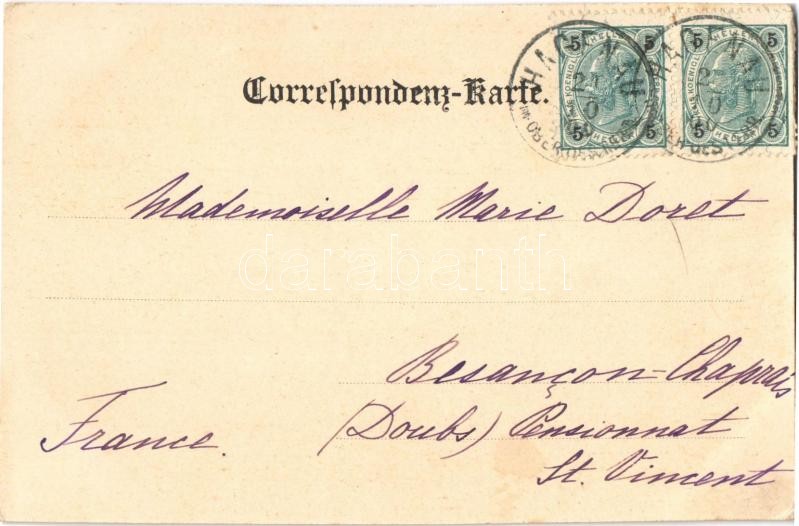 5 HELLER 5 5 HELLER 5
HAGENAU HAGENAU
Correspondenz-Karte.
Mademoiselle Marie Doret
darabanth
Besançon-Chaprais
France. (Doubs) Pensionnat
St. Vincent